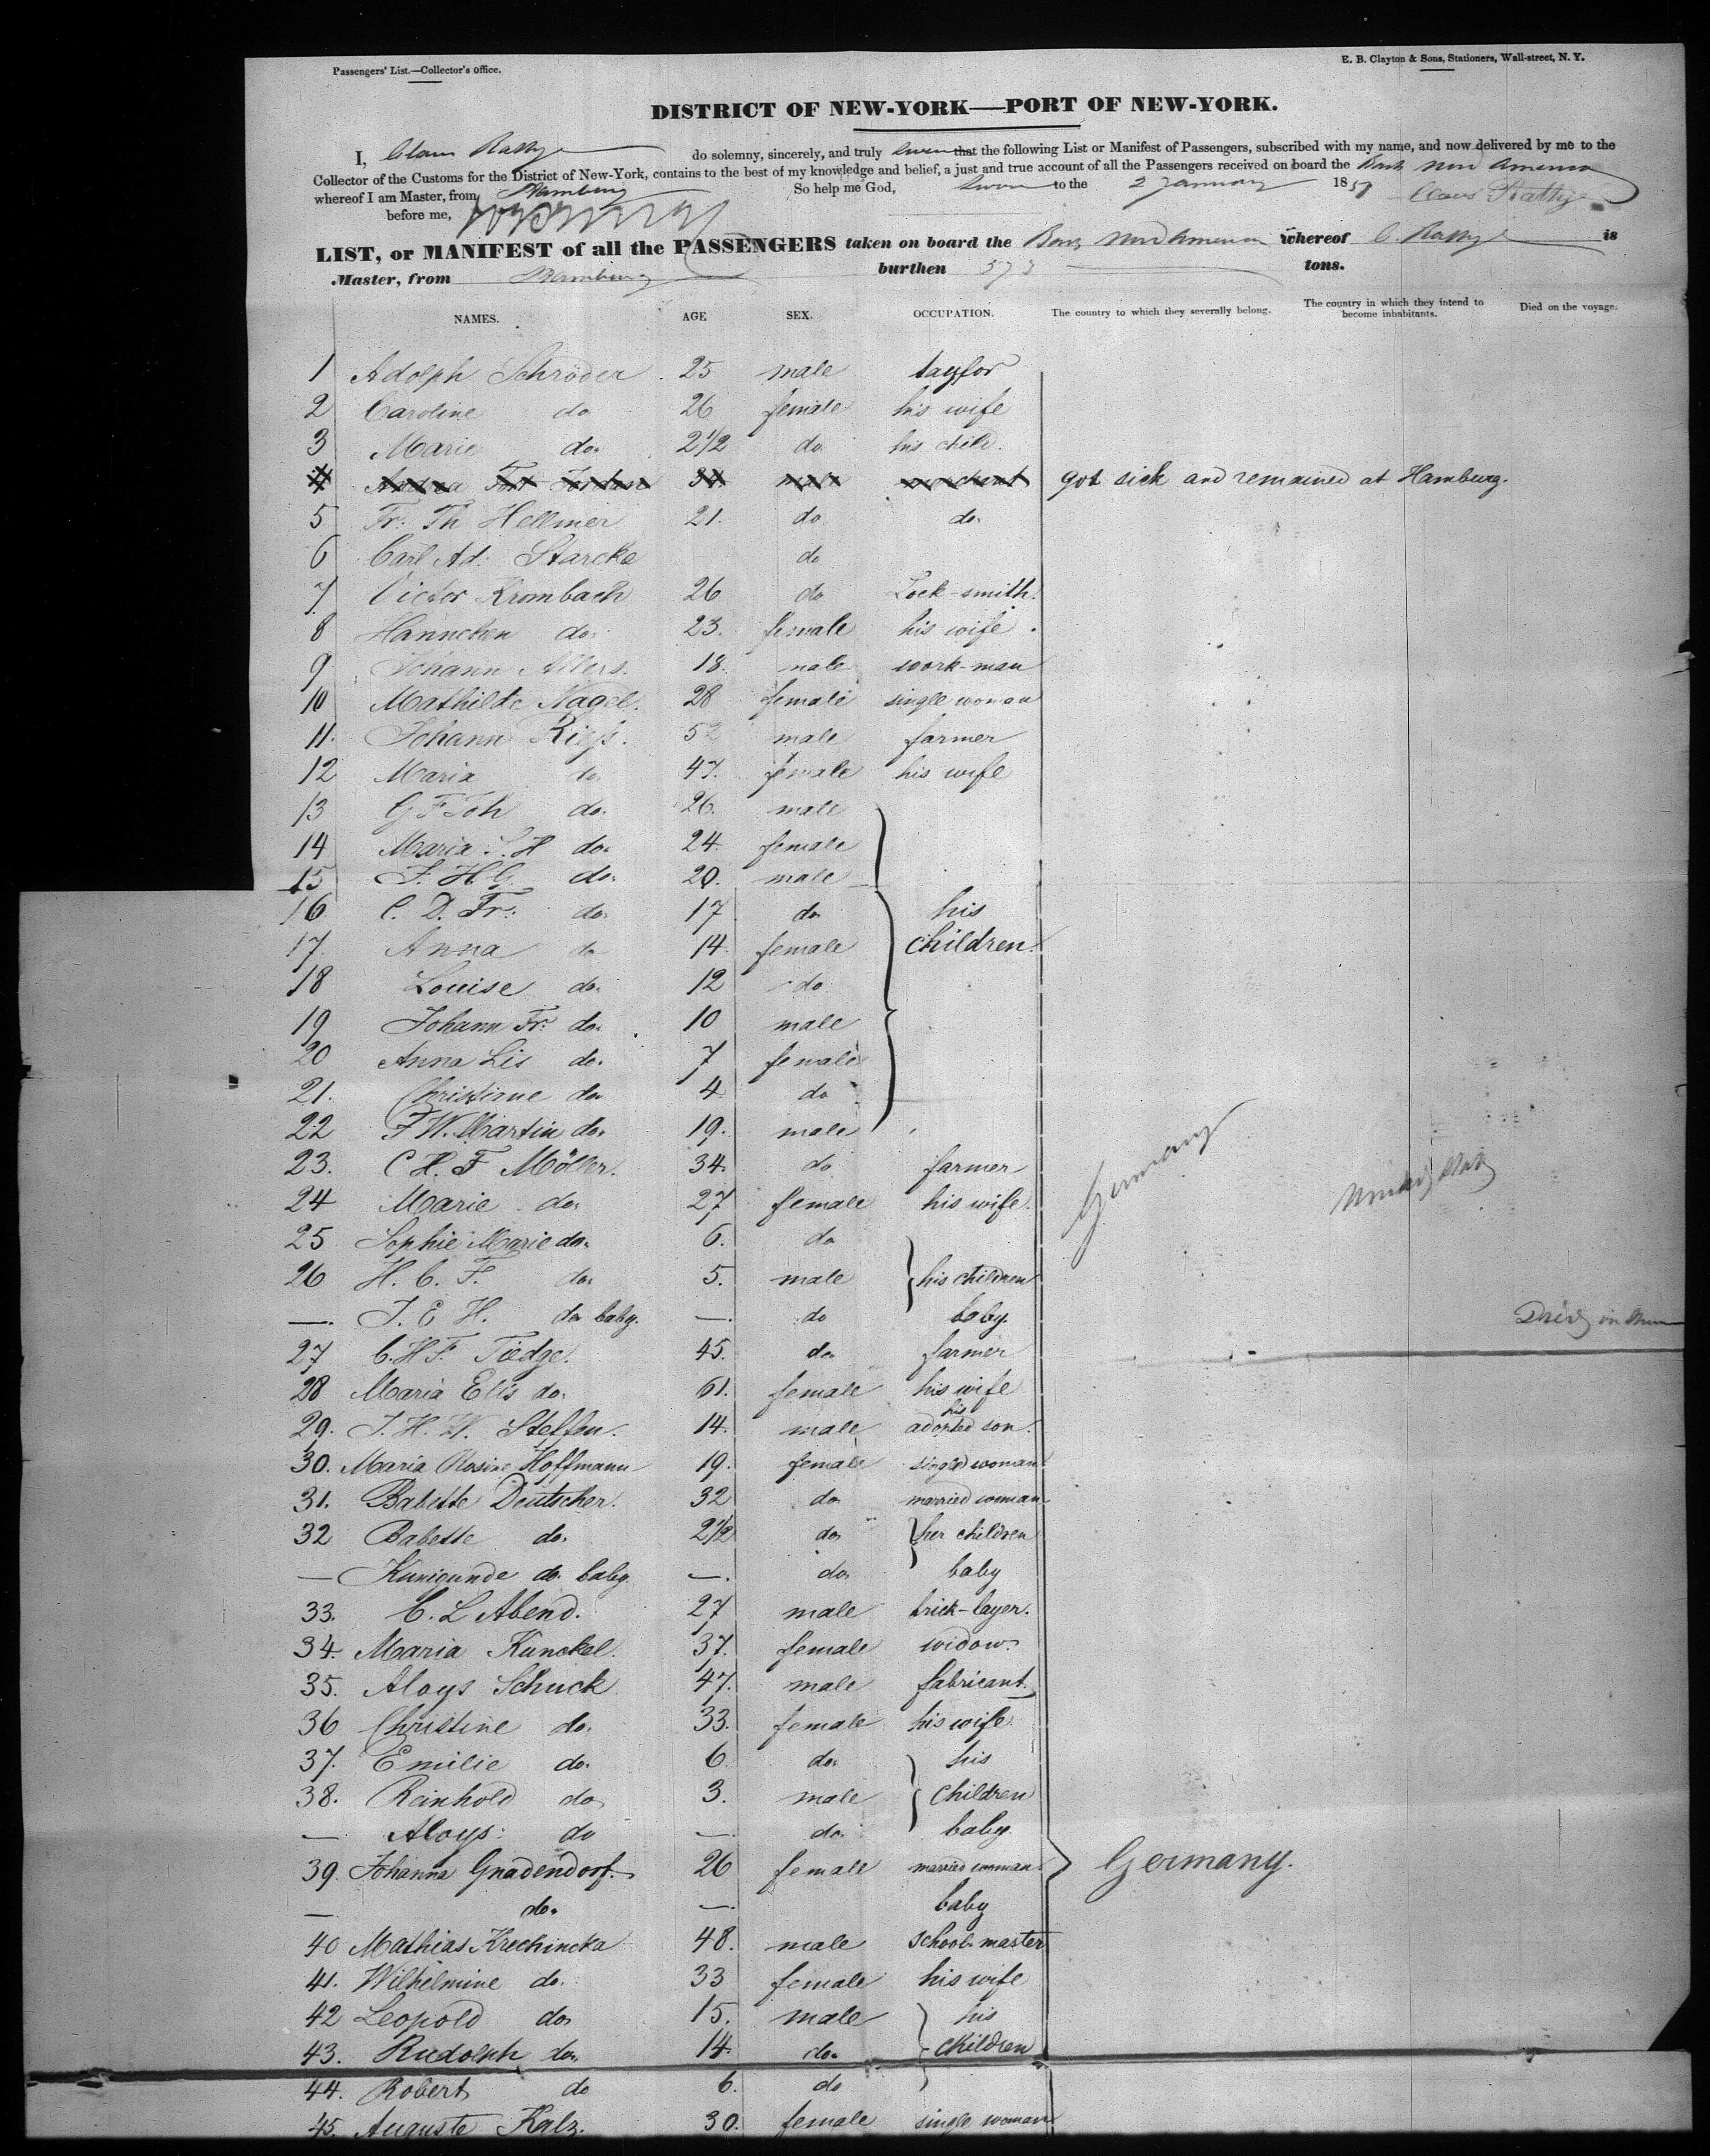 Passengers' List.—Collector's Office.
E. B. Clayton & Sons, Stationers, Wall-street, N. Y.
DISTRICT OF NEW-YORK—PORT OF NEW-YORK.
I, do solemny, sincerely, and truly that the following List or Manifest of Passengers, subscribed with my name, and now delivered by me to the
Collector of the Customs for the District of New-York, contains to the best of my knowledge and belief, a just and true account of all the Passengers received on board the Bark
whereof I am Master, from Hamburg So help me God, to the 2 January 18
before me,
LIST, or MANIFEST of all the PASSENGERS taken on board the Bark whereof C. is
Master, from Hamburg burthen 373 tons.
NAMES. AGE SEX. OCCUPATION. The country to which they severally belong. The country in which they intend to become inhabitants. Died on the voyage.
1 Adolph Schröder 25 male taylor
2 Caroline do 26 female his wife
3 Marie do. 2 1/2 do his child.
4 got sick and remained at Hamburg.
5 Fr. Th Hellmer 21. do do.
6 Carl Ad. Starcke do
7 Victor Krombach 26 do Lock-smith.
8 Hannchen do. 23. female his wife.
9 Johann 18. male work-man
10 Mathilde Nagel. 28 female single woman
11. Johann Rieß. 52 male farmer
12 Maria do 47. female his wife
13 G F Joh do. 26. male
14 Maria S. H do. 24. female
15 J. H. G. do. 20. male
16 C. D. Fr. do. 17 do his
17. Anna do 14. female children.
18 Louise do. 12 do
19 Johann Fr. do. 10 male
20 Anna Lis do. 7 female
21. Christine do 4 do
22 F W. Martin do. 19. male
23. C H. F Möller. 34. do farmer
24 Marie do. 27 female his wife.
Germany
25 Sophie Marie do. 6. do
26 H. C. F. do. 5. male his children
—. J. E H. do baby. —. do baby.
27 C. H F. Tiedge. 45. do. farmer
28 Maria Elis do. 61. female his wife
29. J. H. W. Steffen. 14. male his adopted son.
30. Maria Rosine Hoffmann 19. female single woman
31. Babette Deutscher. 32 do married woman
32 Babette do. 2 1/2 do. her children
— Kunigunde do. baby. —. do. baby
33. C. L Abend. 27 male brick-layer.
34. Maria Kunckel. 37. female widow.
35. Aloys Schuck 47. male fabricant.
36 Christine do. 33. female his wife.
37. Emilie do. 6 do. his
38. Reinhold do. 3. male children
— Aloys do — do. baby.
39. Johanna Gnadendorf. 26 female married woman. Germany.
— do. —. baby
40 Mathias Krechincka 48. male school-master
41. Wilhelmine do. 33 female his wife
42 Leopold do. 15. male his
43. Rudolph do. 14. do. children
44. Robert do 6. do
45. Auguste Kalz. 30. female single woman